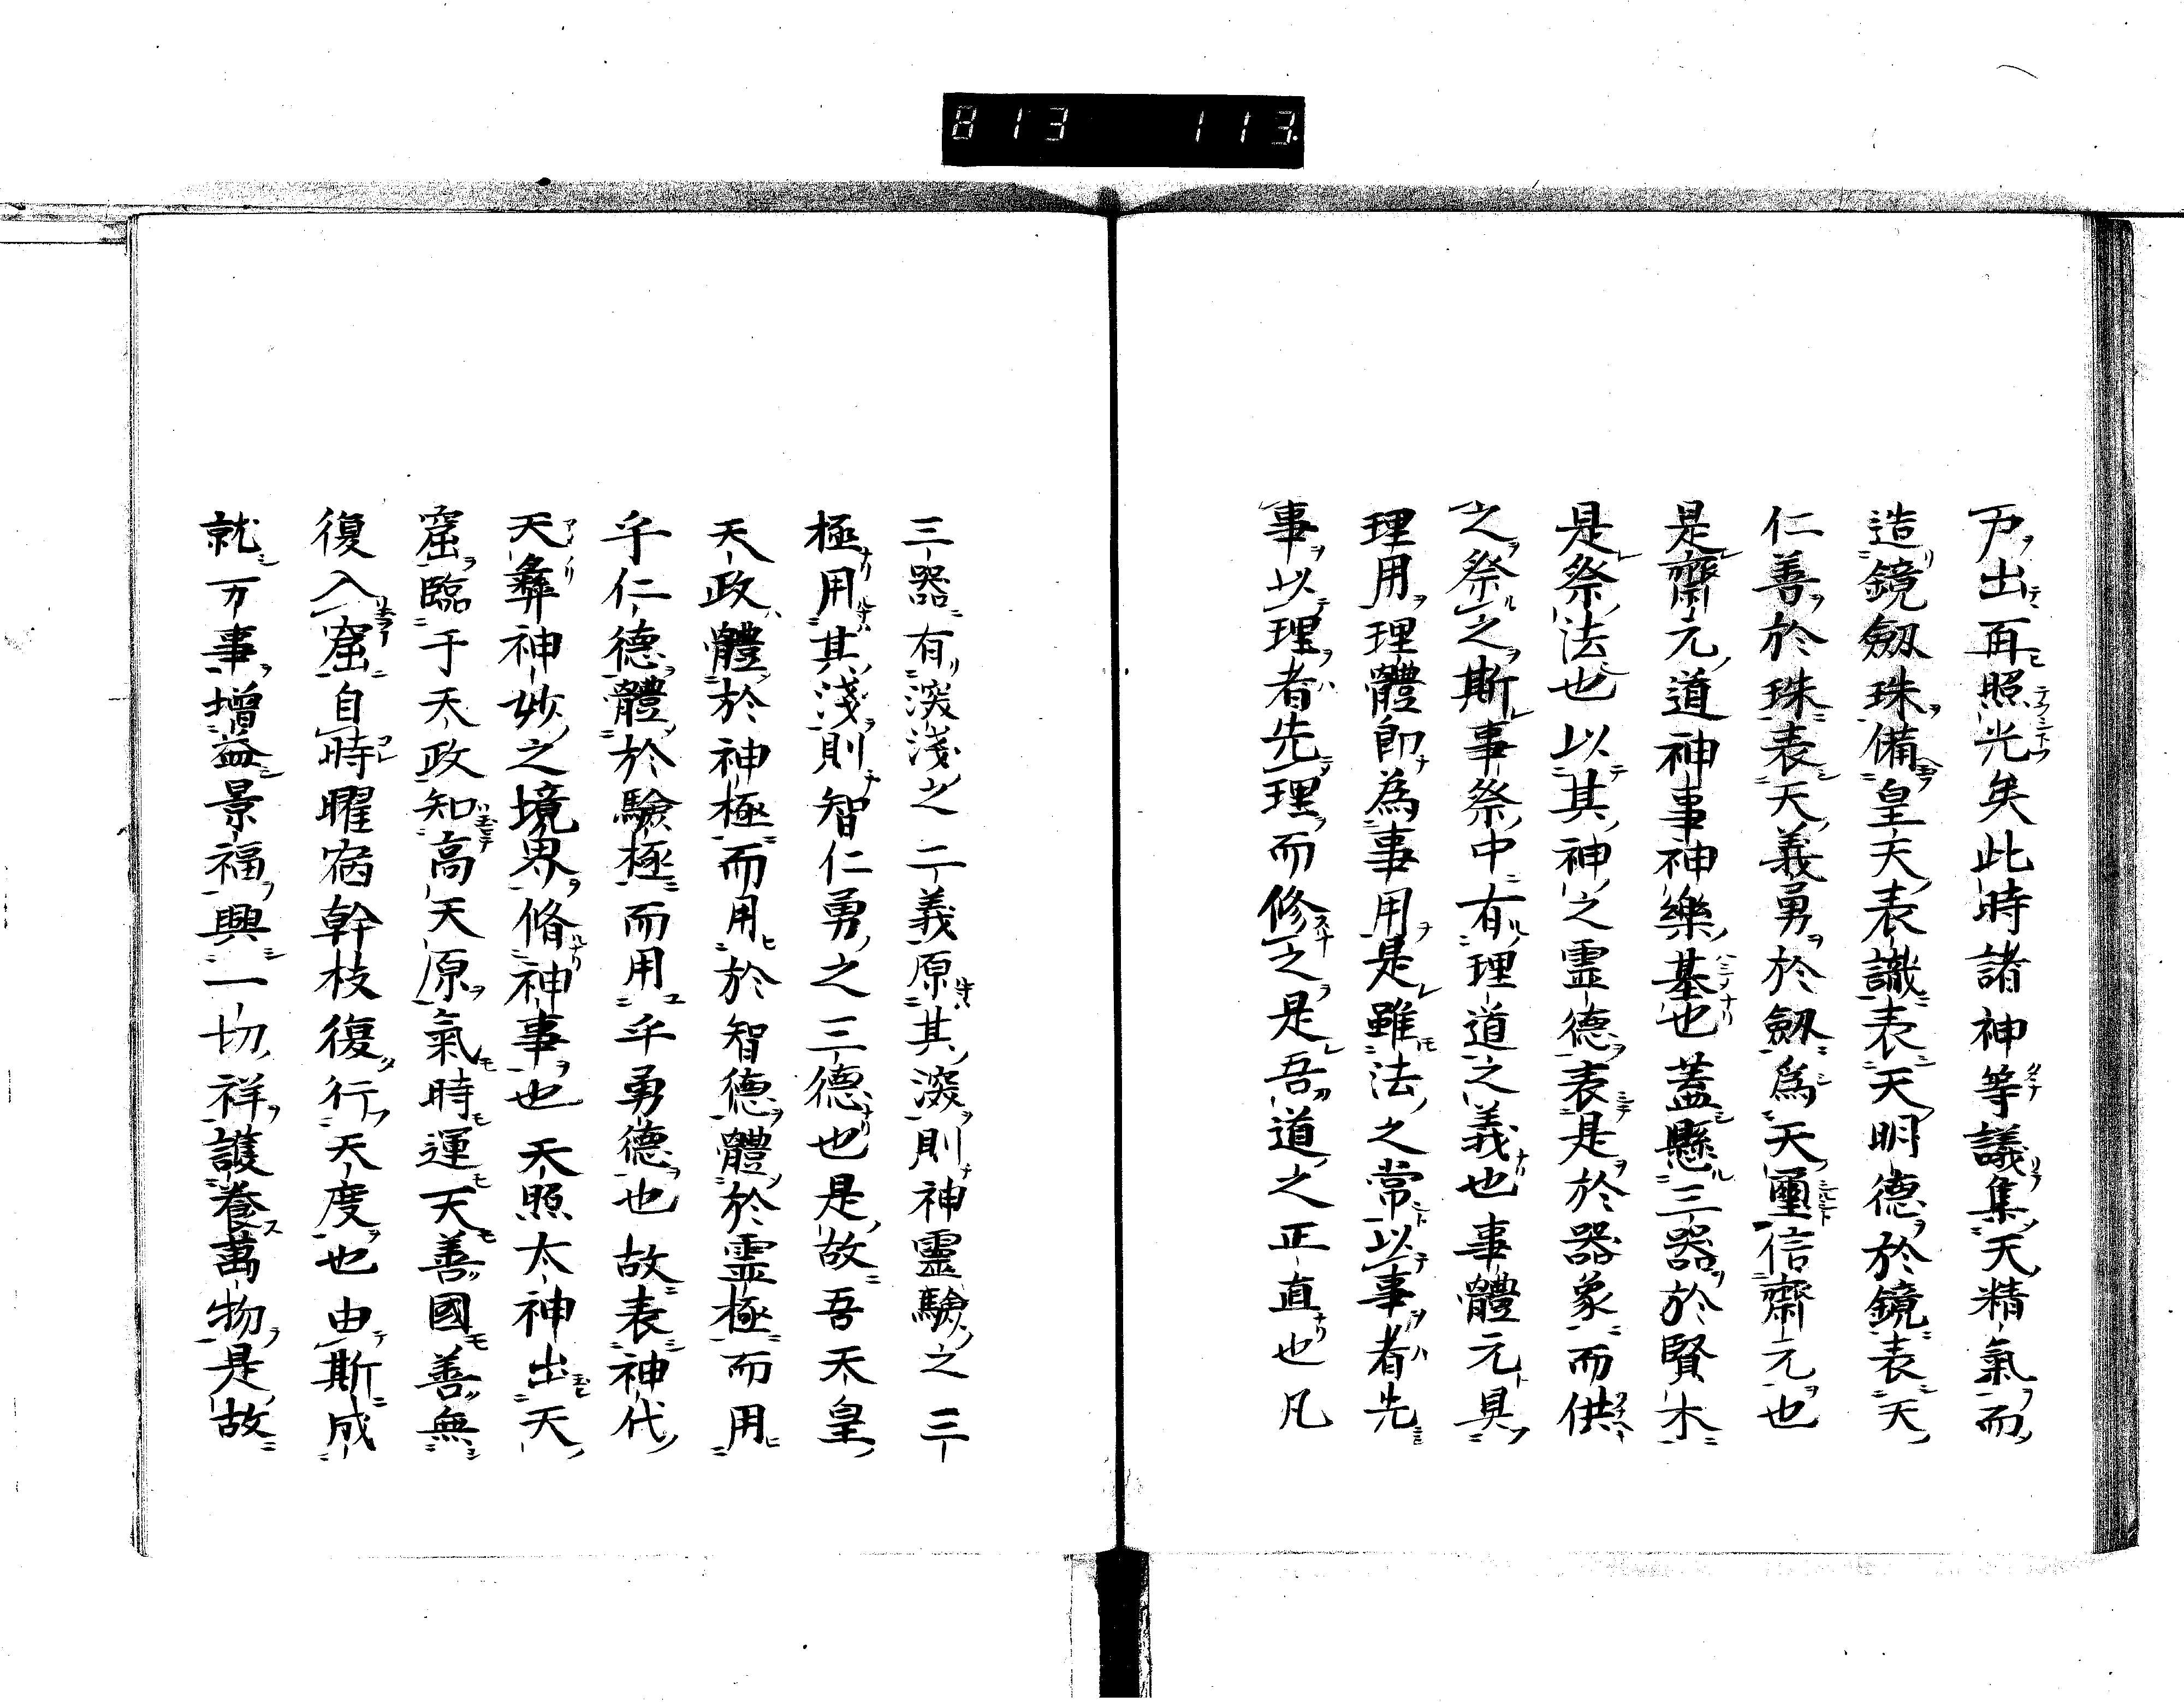 813 113
戸出再照光矣此時諸神等議集天精氣而
造鏡劔珠備皇天表識表天明德於鏡表天
仁善於珠表天義勇於劔為天璽信齋元也
是齋元道神事神樂基也蓋懸三器於賢木
是祭法也以其神之霊德表是於器象而供
之祭之斯事祭中有理道之義也事體元具
理用理體即為事用是雖法之常以事者先
事以理者先理而修之是吾道之正直也凡
三器有深淺之二義原其深則神靈驗之三
極用其淺則智仁勇之三德也是故吾天皇
天政體於神極而用於智德體於霊極而用
乎仁德體於驗極而用乎勇德也故表神代
天彝神妙之境界脩神事也天照太神出天
窟臨于天政知高天原氣時運天善國善無
復入窟自時曜宿幹枝復行天度也由斯成
就万事増益景福興一切祥護養萬物是故